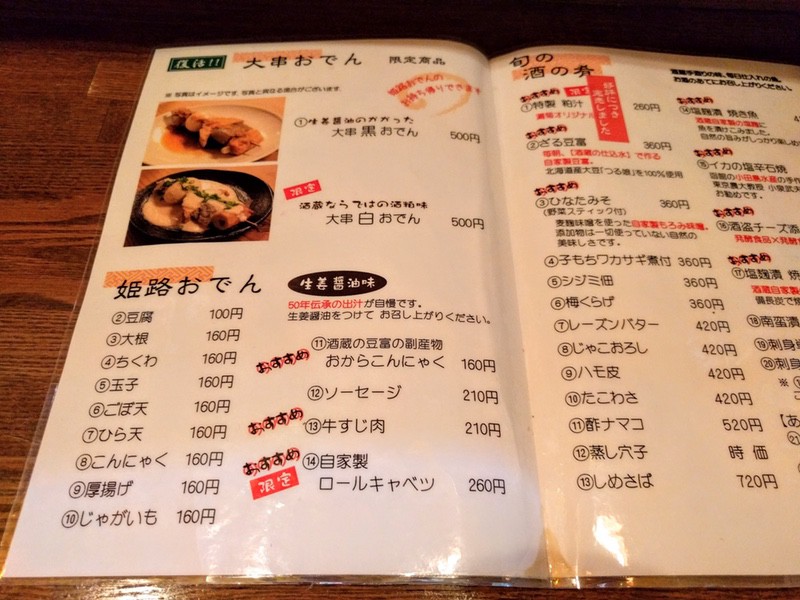 復活!! 大串おでん 限定商品
※ 写真はイメージです。写真と異なる場合がございます。
姫路おでんの
お持ち帰りできます
①生姜醤油のかかった
大串 黒 おでん 500円
限定
酒蔵ならではの酒粕味
大串 白 おでん 500円
姫路おでん
②豆腐 100円
③大根 160円
④ちくわ 160円
⑤玉子 160円
⑥ごぼ天 160円
⑦ひら天 160円
⑧こんにゃく 160円
⑨厚揚げ 160円
⑩じゃがいも 160円
生姜醤油味
50年伝承の出汁が自慢です。
生姜醤油をつけて お召し上がりください。
⑪酒蔵の豆富の副産物
おすすめ
おからこんにゃく 160円
⑫ソーセージ 210円
おすすめ
⑬牛すじ肉 210円
おすすめ
限定
⑭自家製
ロールキャベツ 260円
旬の
酒の肴
おすすめ 限定
①特製 粕汁 260円
灘菊オリジナル
好評につき
完売しました
おすすめ
②ざる豆富 360円
毎朝、【酒蔵の仕込水】で作る
自家製豆富。
北海道産大豆「つる娘」を100%使用
おすすめ
③ひなたみそ 360円
(野菜スティック付)
麦麹味噌を使った自家製もろみ味噌。
添加物は一切使っていない自然の
美味しさです。
④子もちワカサギ煮付 360円
⑤シジミ佃 360円
⑥梅くらげ 360円
⑦レーズンバター 420円
⑧じゃこおろし 420円
⑨ハモ皮 420円
⑩たこわさ 420円
⑪酢ナマコ 520円
⑫蒸し穴子 時価
⑬しめさば 720円
お酒のあてにお召し上がりください。
おすすめ
⑭塩麹漬 焼き魚
酒蔵自家製の塩麹に
魚を漬けこみました。
自然の旨みがしっかり楽しめ
おすすめ
⑮イカの塩辛石焼
函館の小田島水産の手作
東京農大教授 小泉武夫
お勧めです。
おすすめ
⑯酒盗チーズ添
発酵食品×発酵
おすすめ
⑰塩麹漬 焼
酒蔵自家製
備長炭で焼
⑱南蛮漬
⑲刺身
⑳刺身
【あ